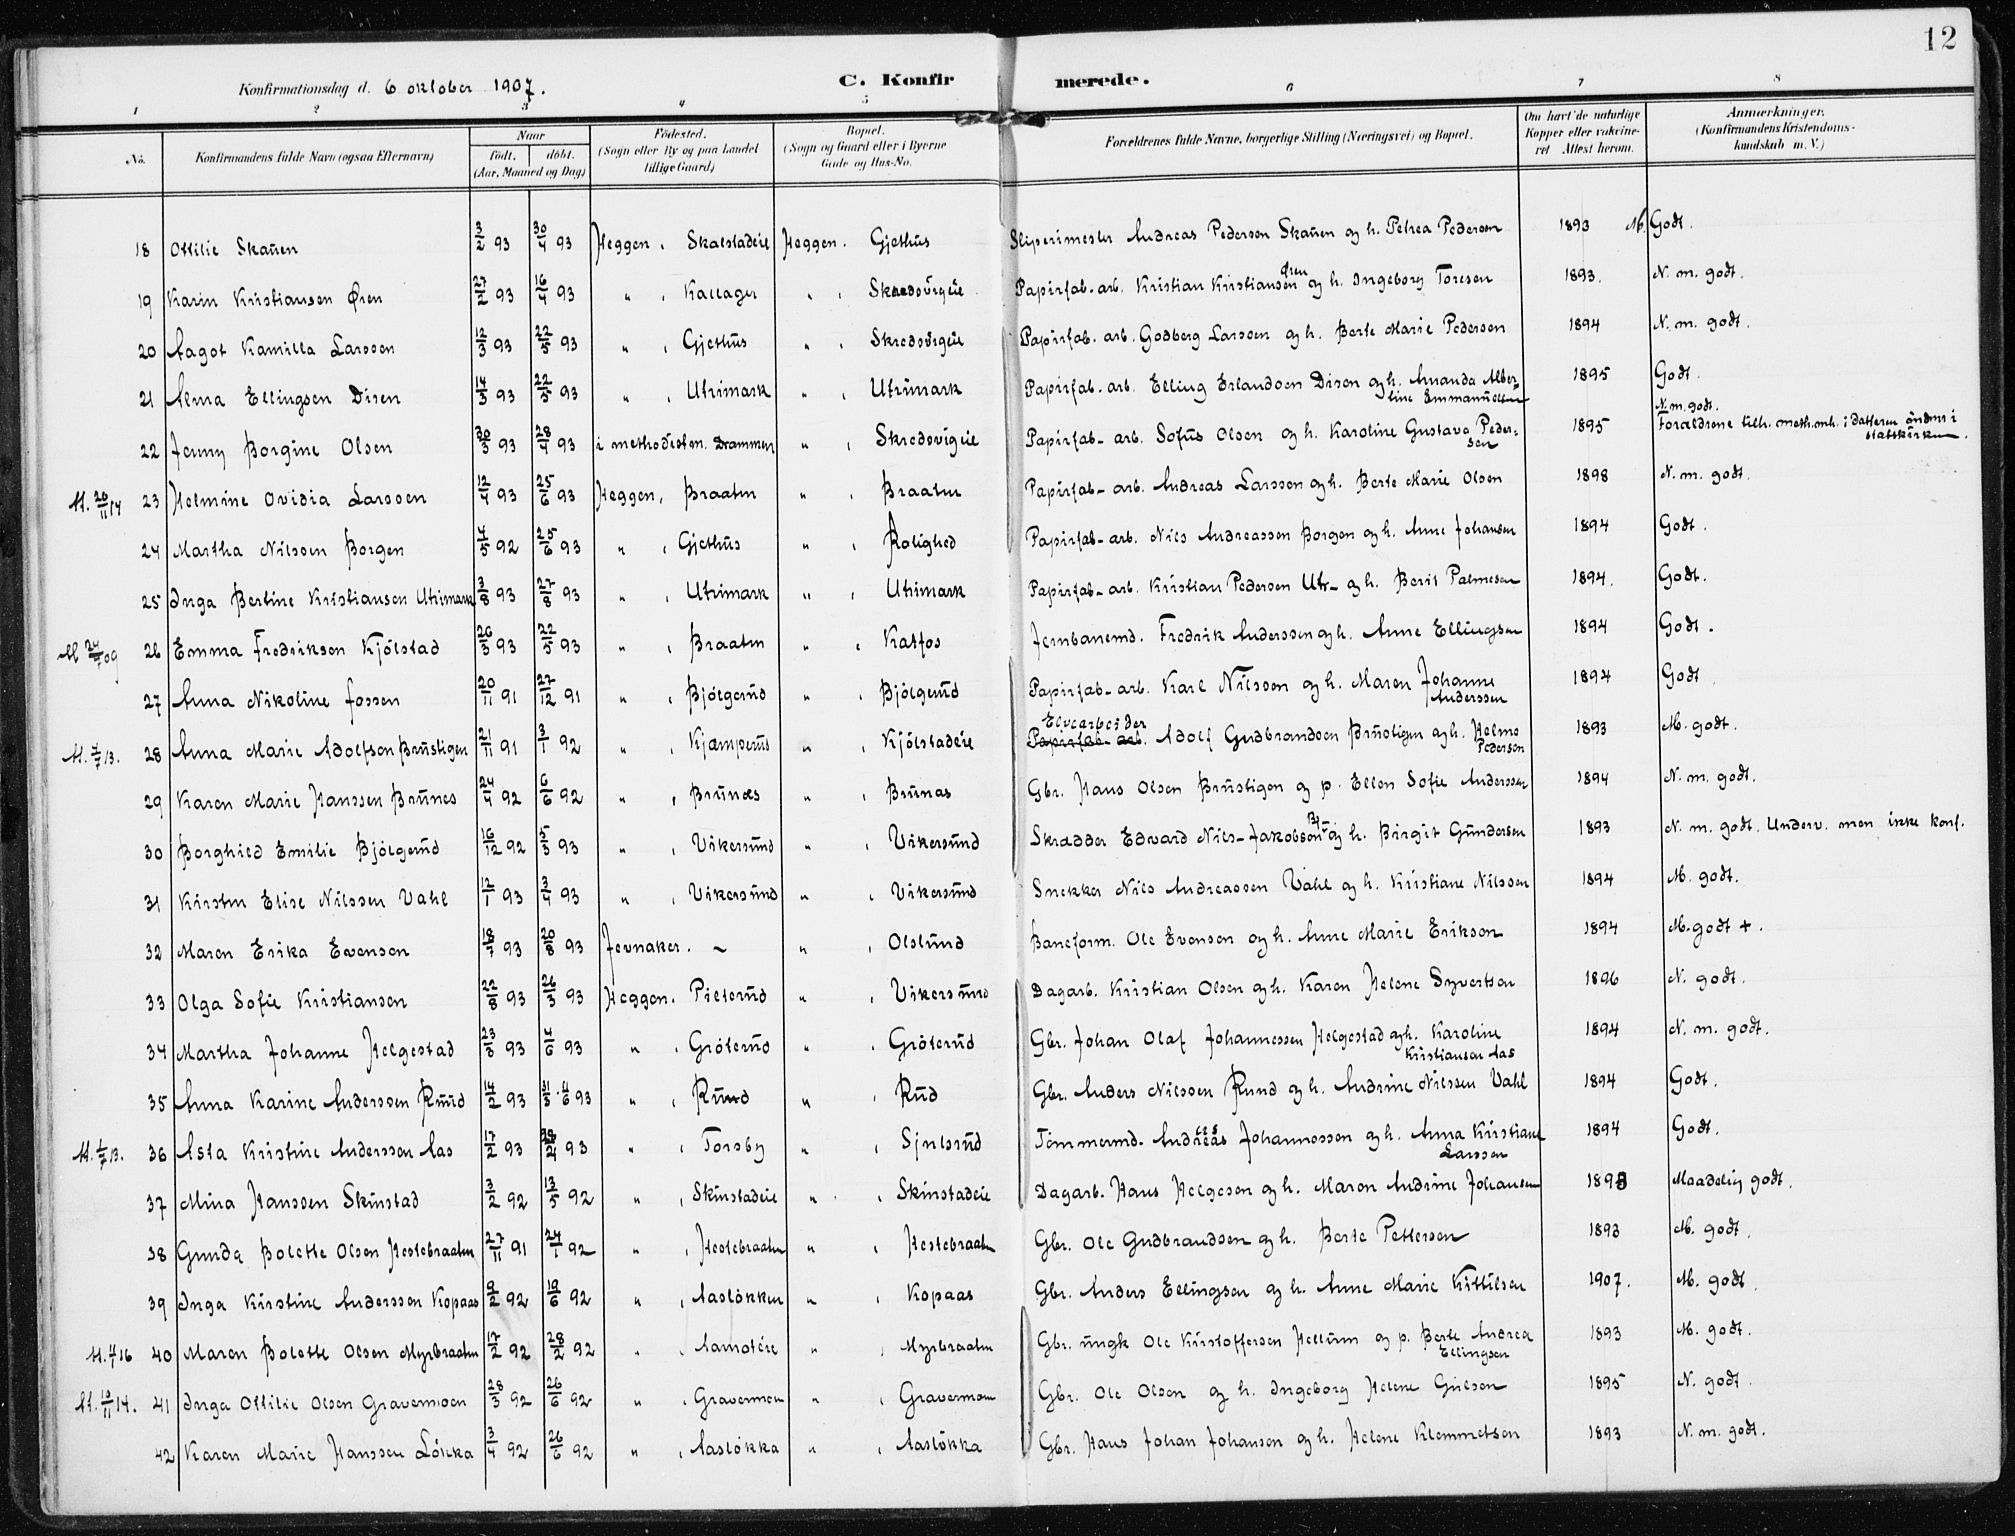 12
Konfirmationsdag d. 6 oktober 1907. C. Konfirmerede.
1 2 3 4 5 6 7 8
No. Konfirmandens fulde Navn (ogsaa Efternavn) Naar födt. döbt. (Aar, Maaned og Dag) Födested. (Sogn eller By og paa Landet tillige Gaard) Bopæl. (Sogn og Gaard eller i Byerne Gade og Hus-No. Forældrenes fulde Navne, borgerlige Stilling (Næringsvei) og Bopæl. Om havt de naturlige Kopper eller vakcineret Attest herom. Anmærkninger. (Konfirmandens Kristendomskundskab m. V.)
18 Ottilie Skauen 3/2 93 30/4 93 Heggen, Skalstadeie Heggen. Gjethus Sliperimester Andreas Pederson Skauen og h. Petrea Pederson 1893 M. Godt.
19 Karin Kristiansen Øren 27/2 93 16/4 93 " , Kallager " , Skredsvigeie Papirfab. arb. Kristian Kristiansen Øren og h. Ingeborg Toresen 1893. N. m. godt.
20 Aagot Kamilla Larssen 12/3 93 22/5 93 " , Gjethus " , Skredsvigeie Papirfab. arb. Godberg Larssen og h. Berte Marie Pedersen 1894 N. m. godt.
21 Alma Ellingsen Disen 14/3 93 22/5 93 " , Utrimark " , Utrimark Papirfab. arb. Elling Erlandsen Disen og h. Amanda Albertine Emmanuelsen 1895 Godt.
22 Jenny Borgine Olsen 30/3 93 28/4 93 i methodistm. Drammen " , Skredsvigeie Papirfab. arb. Sofus Olsen og h. Karoline Gustava Pedersen 1895 N. m. godt. Forældrene tilh. meth.mh. : datteren ønsker i statskirken.
M. 20/11 14 23 Helmine Ovidia Larssen 12/4 93 25/6 93 Heggen, Braaten " , Braaten Papirfab. arb. Andreas Larssen og h. Berte Marie Olsen 1898 N. m. godt.
24 Martha Nilssen Borgen 4/5 92 25/6 93 " , Gjethus " , Rolighed Papirfab. arb. Nils Andreassen Borgen og h. Anne Johansen 1894 Godt.
25 Inga Bertine Kristiansen Utrimark 3/8 93 27/8 93 " , Utrimark " , Utrimark Papirfab. arb. Kristian Pedersen Utr- og h. Berit Palmesen 1894. Godt.
M 24/7 09 26 Emma Fredriksen Kjölstad 26/3 93 22/5 93 " , Braaten " , Katfos Jernbanemd. Fredrik Anderssen og h. Anne Ellingsen 1894 Godt.
27 Anna Nikoline Fossen 20/11 91 27/12 91 " , Bjölgerud " , Bjölgerud Papirfab. arb. Karl Nilsson og h. Maren Johanne Anderssen 1894 Godt.
M. 4/7 13. 28 Anna Marie Adolfsen Brustigen 21/11 91 3/1 92 " , Kjæmperud " , Kjölstadeie Elvearbeider Papirfab. arb. Adolf Gudbrandsen Brustigen og h. Helme Pedersen 1893 M. godt.
29 Karen Marie Hanssen Brunes 24/4 92 6/6 92 " , Brunæs " , Brunas Gbr. Hans Olsen Brustigen og p. Ellen Sofie Anderssen 1894 N. m. godt.
30 Borghild Emilie Bjölgerud 16/12 92 5/3 93 " , Vikersund " , Vikersund Skrædder Edvard Nils-Jakobsen Bj- og h. Birgit Gundersen 1893 N. m. godt. Underv. men ikke konf.
31 Kirsten Elise Nilssen Vahl 12/1 93 3/4 93 " , Vikersund " , Vikersund Snekker Nils Andreassen Vahl og h. Kristiane Nilssen 1894 M. godt.
32 Maren Erika Evensen 18/7 93 20/8 93 Jevnaker. ~ " , Olslund Baneform. Ole Evensen og h. Anne Marie Eriksen 1894 M. godt +.
33 Olga Sofie Kristiansen 22/8 93 26/3 93 Heggen. Pieterud " , Vikersund Dagarb. Kristian Olsen og h. Karen Helene Syvertsen 1896 N. godt.
34 Martha Johanne Helgestad 23/3 93 4/6 93 " , Gröterud " , Gröterud Gbr. Johan Olaf Johannessen Helgestad og h. Karoline Kristiansen Aas 1894 N. m. godt.
35 Anna Karine Anderssen Ruud 14/2 93 31/3 . 4/6 93 " , Ruud " , Rud Gbr. Anders Nilssen Ruud og h. Andrine Nilssen Vahl 1894 Godt.
M. 4/7 13. 36 Asta Kristine Anderssen Aas 17/2 93 93 " , Torsby " , Sjulsrud Tömmermd. Andreas Johannessen og h. Anna Kristiane Larssen 1894 Godt.
37 Mina Hanssen Skinstad 3/2 92 13/5 92 " , Skinstadeie " , Skinstadeie Dagarb. Hans Helgesen og h. Maren Andrine Johansen 1893 Maadelig godt.
38 Gunda Bolette Olsen Hestebraaten 27/11 91 24/1 92 " , Hestebraaten " , Hestebraaten Gbr. Ole Gudbrandsen og h. Berte Pettersen 1893 M. godt.
39 Inga Kirstine Anderssen Kopaas 9/2 92 19/6 92 " , Aaslökken " , Kopaas Gbr. Anders Ellingsen og h. Anne Marie Kittilsen 1907. M. godt.
M. 4/7 16 40 Maren Bolette Olsen Myrbraaten 17/2 92 28/2 92 " , Aamoteie " , Myrbraaten Gbr. ungk Ole Kristoffersen Hellum og p. Berte Andrea Ellingsen 1893 M. godt.
M. 10/11 14. 41 Inga Ottilie Olsen Gravermoen 28/3 92 26/6 92 " , Gravermoen " , Gravermoen Gbr. Ole Olsen og h. Ingeborg Helene Gulsen 1895 N. godt.
42 Karen Marie Hanssen Lökka 3/4 92 26/6 92 " , Aaslökka " , Aaslökka Gbr. Hans Johan Johansen og h. Helene Klemmetsen 1893 N. m. godt.